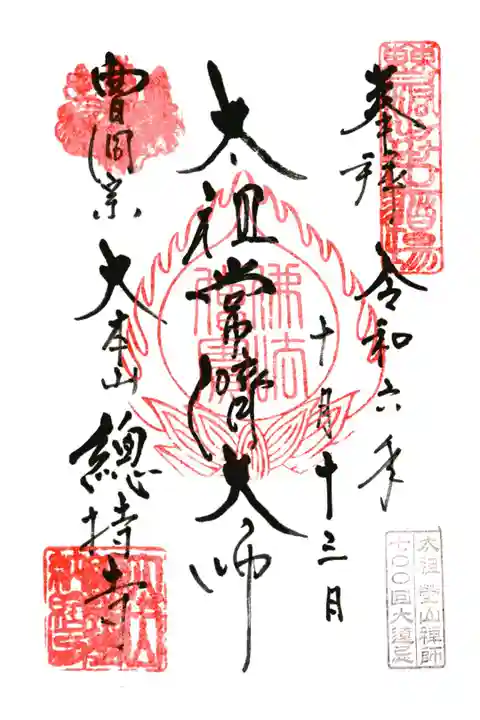 奉拝
令和六年
十月十三日
太祖常濟大師
曹洞宗
大本山
總持寺
佛法僧寶
太祖瑩山禅師
七〇〇回大遠忌